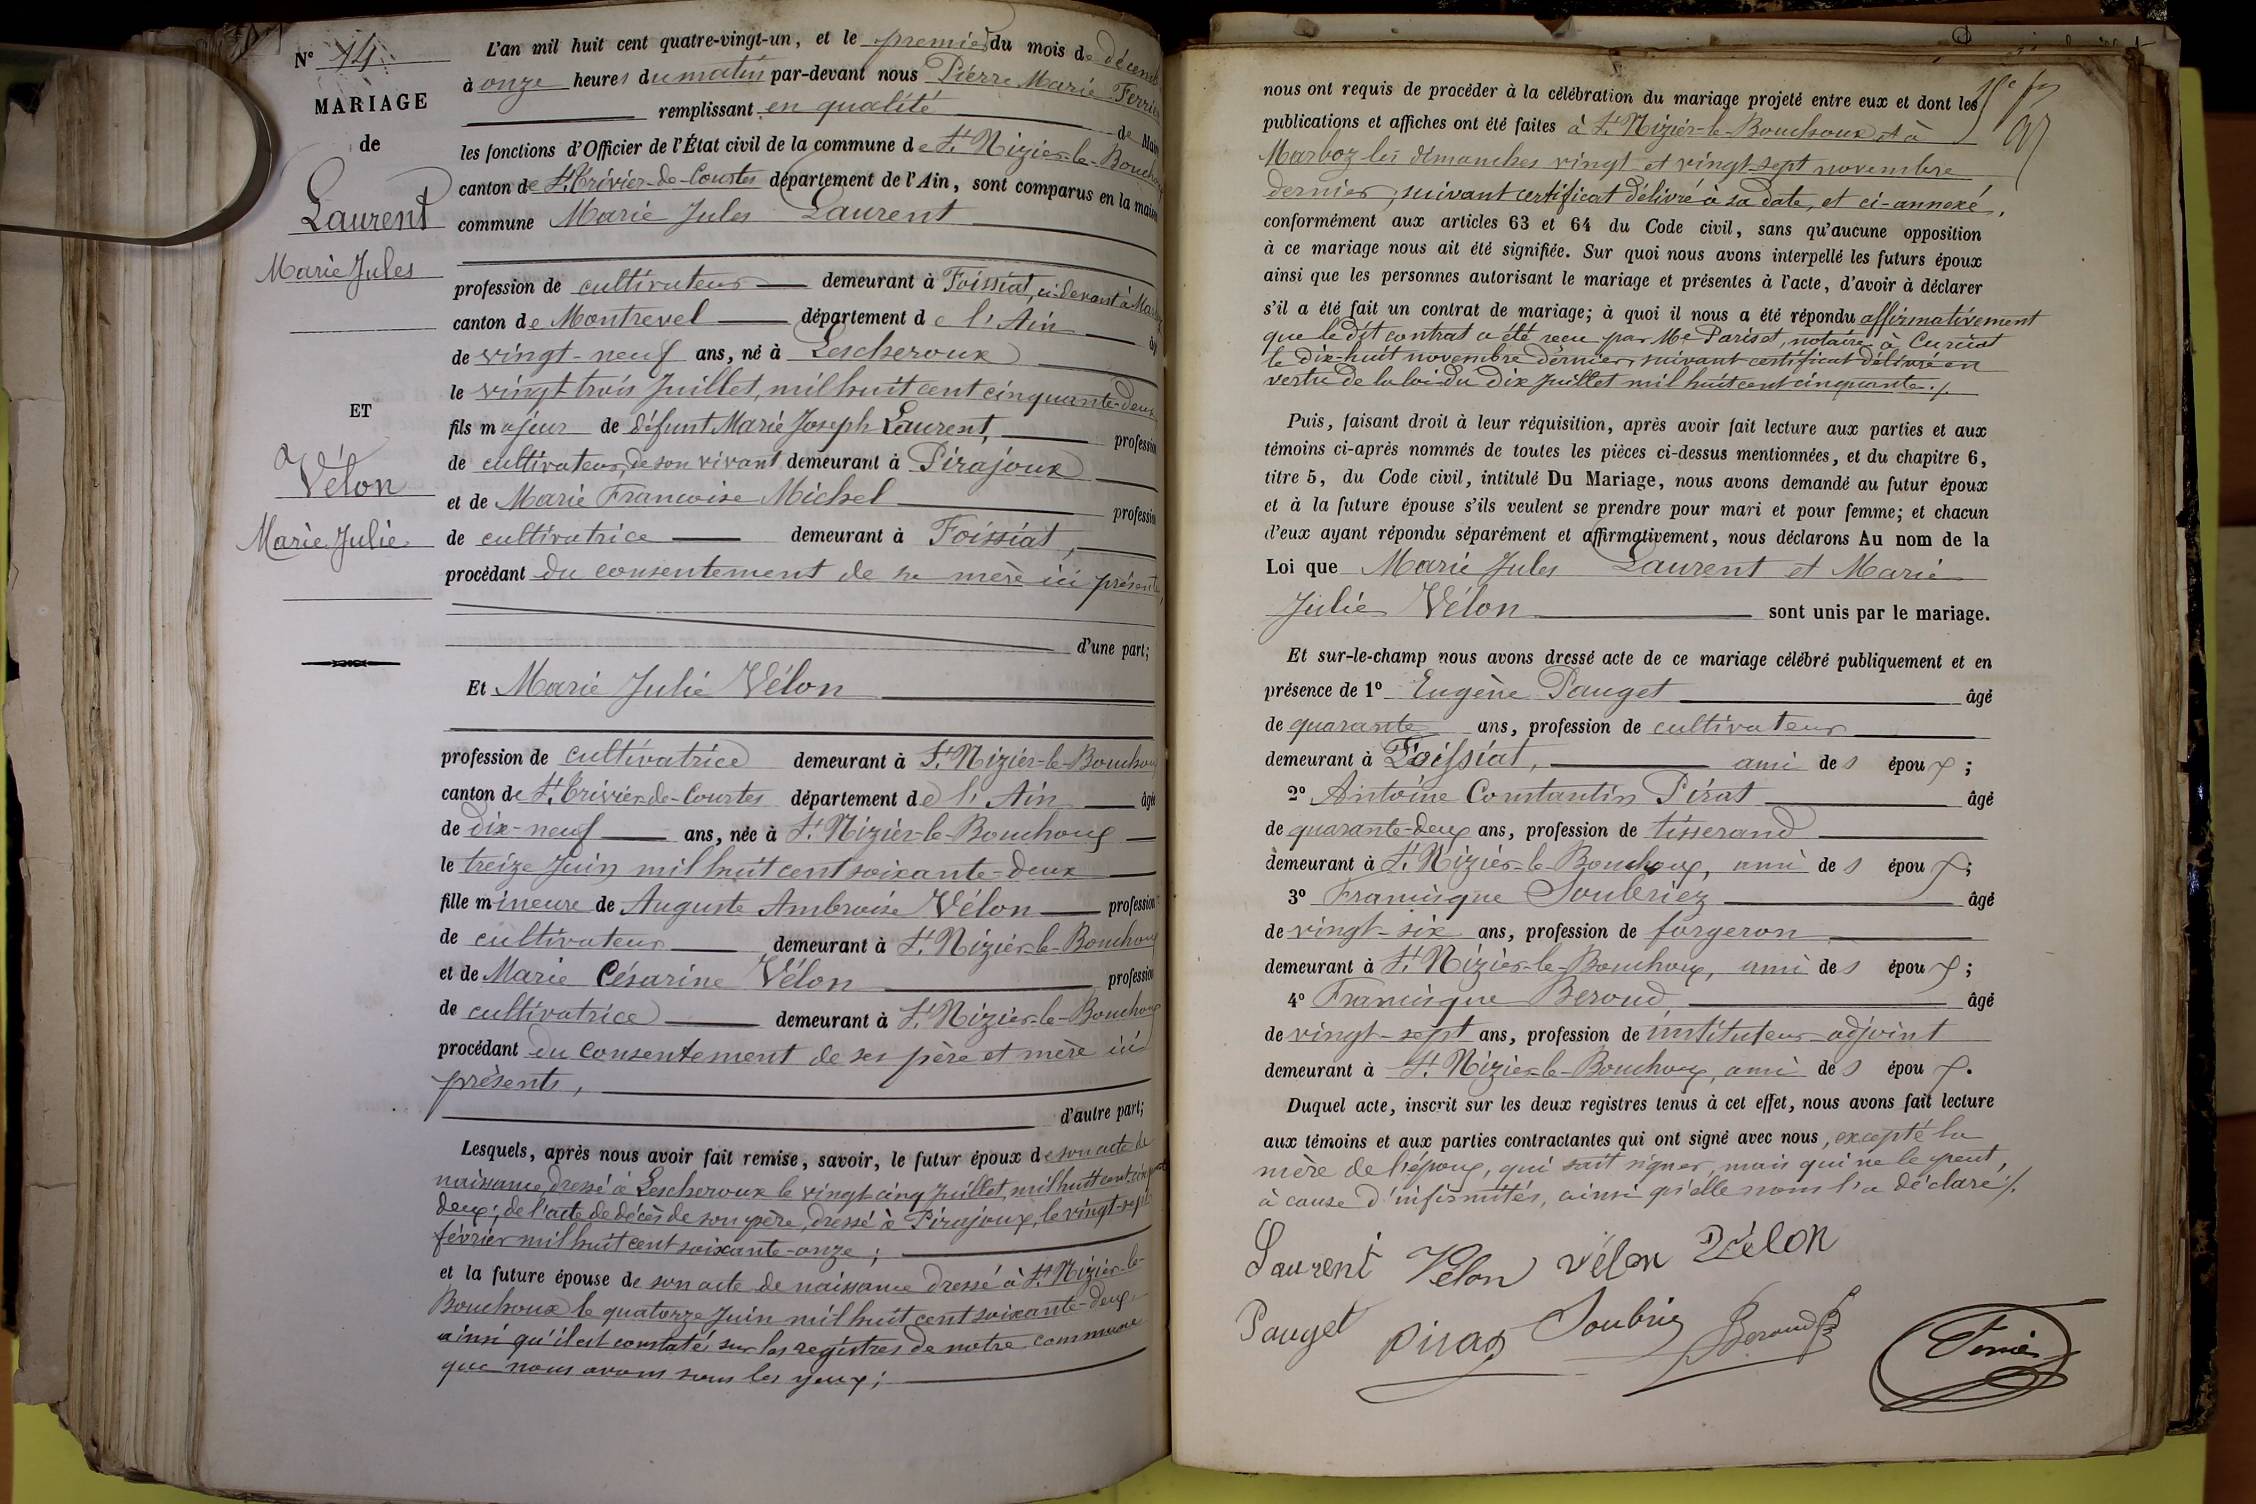 N° 14
MARIAGE
de
Laurent
Marie Jules
ET
Vélon
Marie Julie
L'an mil huit cent quatre-vingt-un, et le premier du mois de décemb
à onze heures du matin par-devant nous Pierre Marie Ferrier
remplissant en qualité de Maire
les fonctions d'Officier de l'État civil de la commune de St Nizier-le-Bouchoux
canton de St Trivier-de-Courtes département de l'Ain, sont comparus en la maison
commune Marie Jules Laurent
profession de cultivateur demeurant à Foissiat, ci-devant à Marboz
canton de Montrevel département de l'Ain âgé
de vingt-neuf ans, né à Lescheroux
le vingt-trois Juillet, mil huit cent cinquante-deux
fils majeur de défunt Marie Joseph Laurent, profession
de cultivateur, de son vivant demeurant à Pirajoux
et de Marie Francoise Michel profession
de cultivatrice demeurant à Foissiat,
procédant du consentement de sa mère ici présente,
d'une part;
Et Marie Julie Vélon
profession de cultivatrice demeurant à St Nizier-le-Bouchoux
canton de St Trivier-de-Courtes département de l'Ain âgée
de dix-neuf ans, née à St Nizier-le-Bouchoux
le treize Juin mil huit cent soixante-deux
fille mineure de Auguste Ambroise Vélon profession
de cultivateur demeurant à St Nizier-le-Bouchoux
et de Marie Césarine Vélon profession
de cultivatrice demeurant à St Nizier-le-Bouchoux
procédant du consentement de ses père et mère ici
présents,
d'autre part;
Lesquels, après nous avoir fait remise, savoir, le futur époux de son acte de
naissance, dressé à Lescheroux le vingt-cinq Juillet, mil huit cent cinquante
deux; de l'acte de décès de son père, dressé à Pirajoux, le vingt-sept
février mil huit cent soixante-onze;
et la future épouse de son acte de naissance dressé à St Nizier-le-
Bouchoux le quatorze Juin mil huit cent soixante-deux
ainsi qu'il est constaté sur les registres de notre commune
que nous avons sous les yeux;
nous ont requis de procéder à la célébration du mariage projeté entre eux et dont les
publications et affiches ont été faites à St Nizier-le-Bouchoux et à
Marboz les dimanches vingt et vingt-sept novembre
dernier, suivant certificat délivré à sa date, et ci-annexé,
conformément aux articles 63 et 64 du Code civil, sans qu'aucune opposition
à ce mariage nous ait été signifiée. Sur quoi nous avons interpellé les futurs époux
ainsi que les personnes autorisant le mariage et présentes à l'acte, d'avoir à déclarer
s'il a été fait un contrat de mariage; à quoi il nous a été répondu affirmativement
que le dit contrat a été recu par Me Pariset, notaire à Curciat
le dix-huit novembre dernier, suivant certificat délivré en
vertu de la loi du dix Juillet mil huit cent cinquante./.
Puis, faisant droit à leur réquisition, après avoir fait lecture aux parties et aux
témoins ci-après nommés de toutes les pièces ci-dessus mentionnées, et du chapitre 6,
titre 5, du Code civil, intitulé Du Mariage, nous avons demandé au futur époux
et à la future épouse s'ils veulent se prendre pour mari et pour femme; et chacun
d'eux ayant répondu séparément et affirmativement, nous déclarons Au nom de la
Loi que Marie Jules Laurent et Marie
Julie Vélon sont unis par le mariage.
Et sur-le-champ nous avons dressé acte de ce mariage célébré publiquement et en
présence de 1° Eugène Pauget âgé
de quarante ans, profession de cultivateur
demeurant à Foissiat, ami des époux;
2° Antoine Constantin Pirat âgé
de quarante-deux ans, profession de tisserand
demeurant à St Nizier-le-Bouchoux, ami des époux;
3° Francisque Soubriez âgé
de vingt-six ans, profession de forgeron
demeurant à St Nizier-le-Bouchoux, ami des époux;
4° Francisque Beroud, âgé
de vingt-sept ans, profession de instituteur-adjoint
demeurant à St Nizier-le-Bouchoux, ami des époux.
Duquel acte, inscrit sur les deux registres tenus à cet effet, nous avons fait lecture
aux témoins et aux parties contractantes qui ont signé avec nous, excepté la
mère de l'époux, qui sait signer, mais qui ne le peut,
à cause d'infirmités, ainsi qu'elle nous l'a déclaré./.
Laurent Vélon Vélon Vélon
Pauget Pirat Soubriez Beroud Ferrier